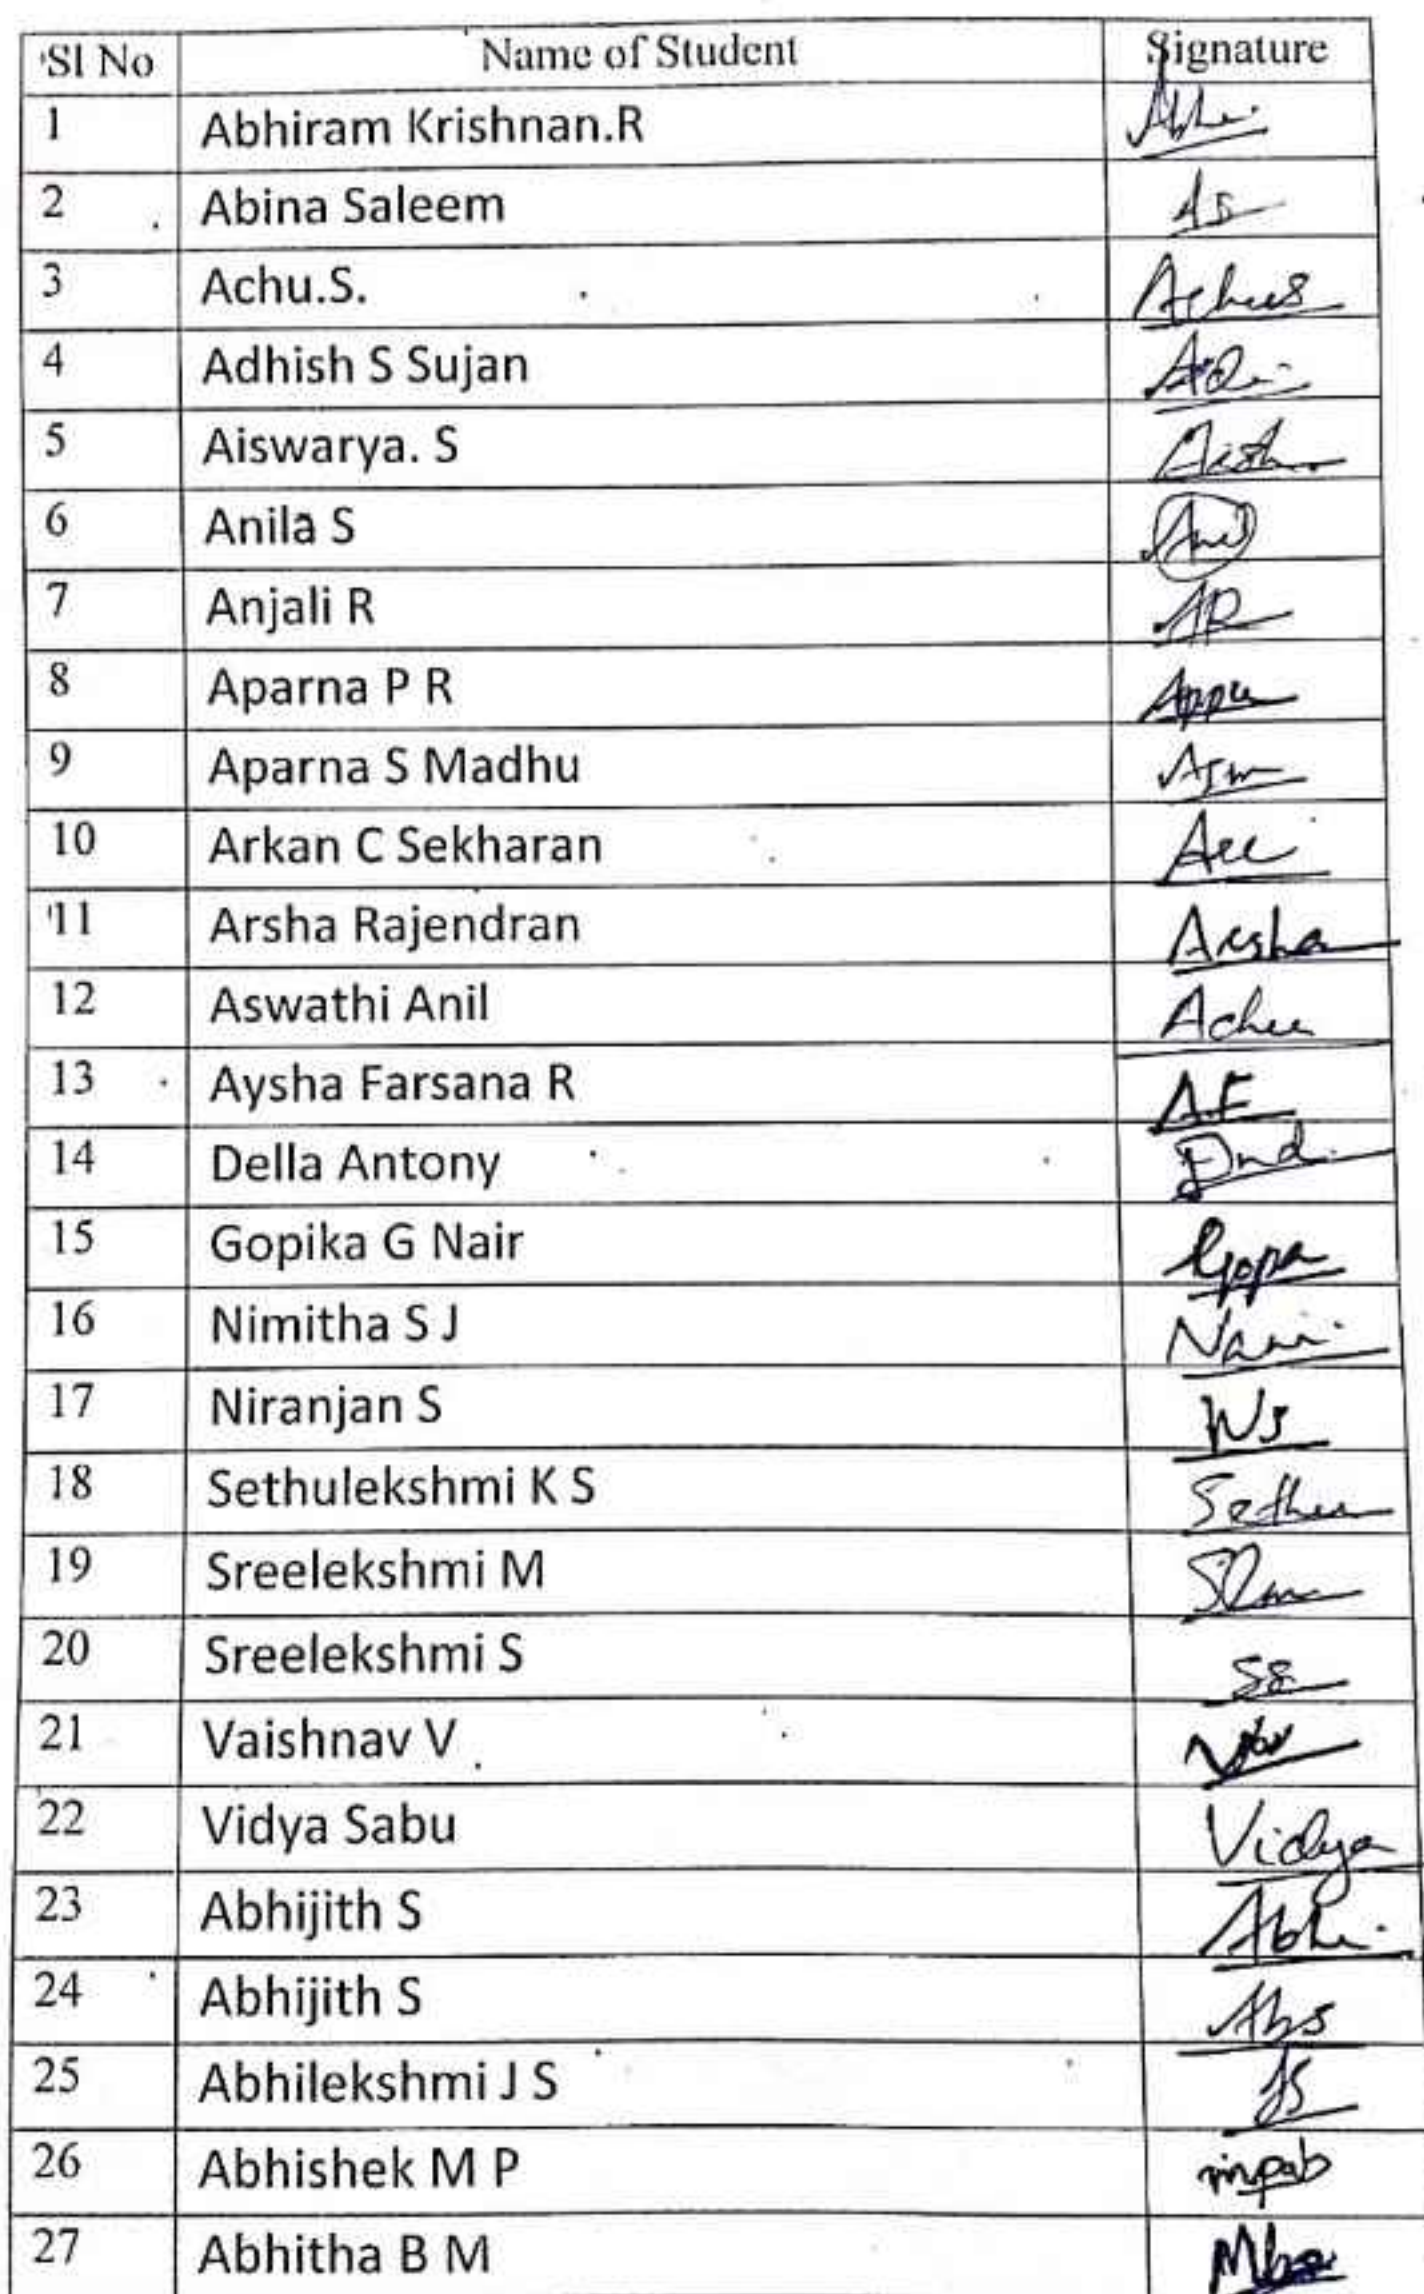 Sl No Name of Student Signature
1 Abhiram Krishnan.R Abhi
2 Abina Saleem AS
3 Achu.S. Achus
4 Adhish S Sujan Adi
5 Aiswarya. S Aish
6 Anila S Ani
7 Anjali R AR
8 Aparna P R Appu
9 Aparna S Madhu Asm
10 Arkan C Sekharan
11 Arsha Rajendran Arsha
12 Aswathi Anil Achu
13 Aysha Farsana R A.F
14 Della Antony
15 Gopika G Nair Gopa
16 Nimitha S J
17 Niranjan S NS
18 Sethulekshmi K S Sethu
19 Sreelekshmi M
20 Sreelekshmi S SS
21 Vaishnav V
22 Vidya Sabu Vidya
23 Abhijith S Abhi
24 Abhijith S Abs
25 Abhilekshmi J S JS
26 Abhishek M P mpab
27 Abhitha B M